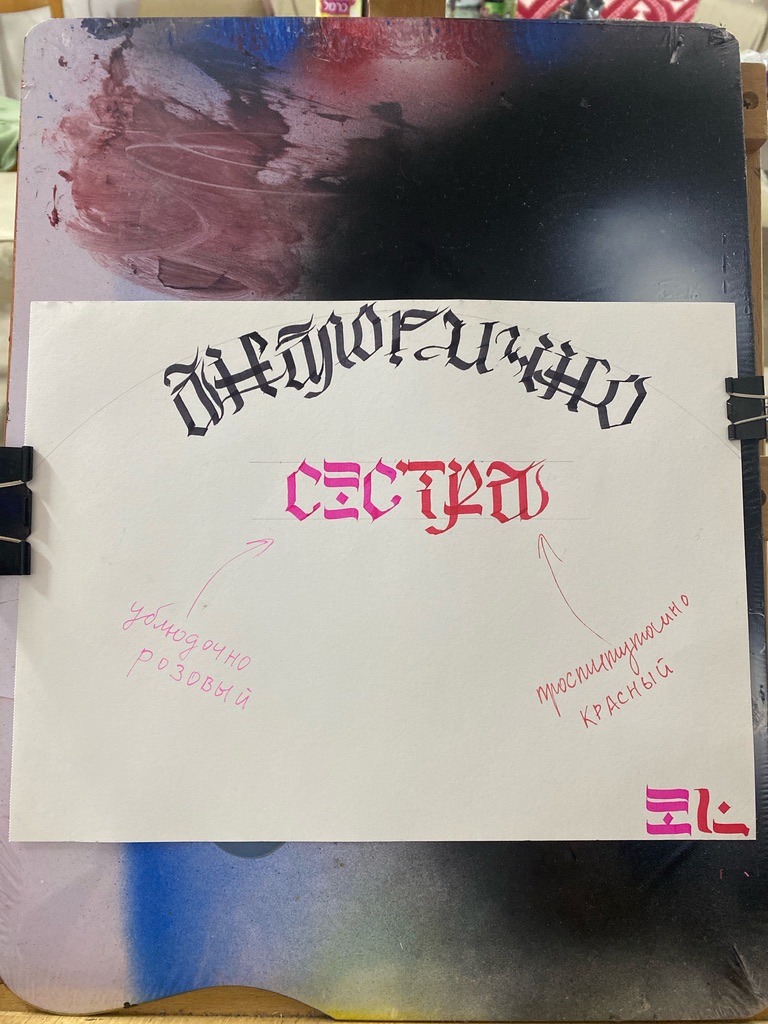 аналогично
СЕСТРА
ублюдочно
розовый
проститутошно
КРАСНЫЙ